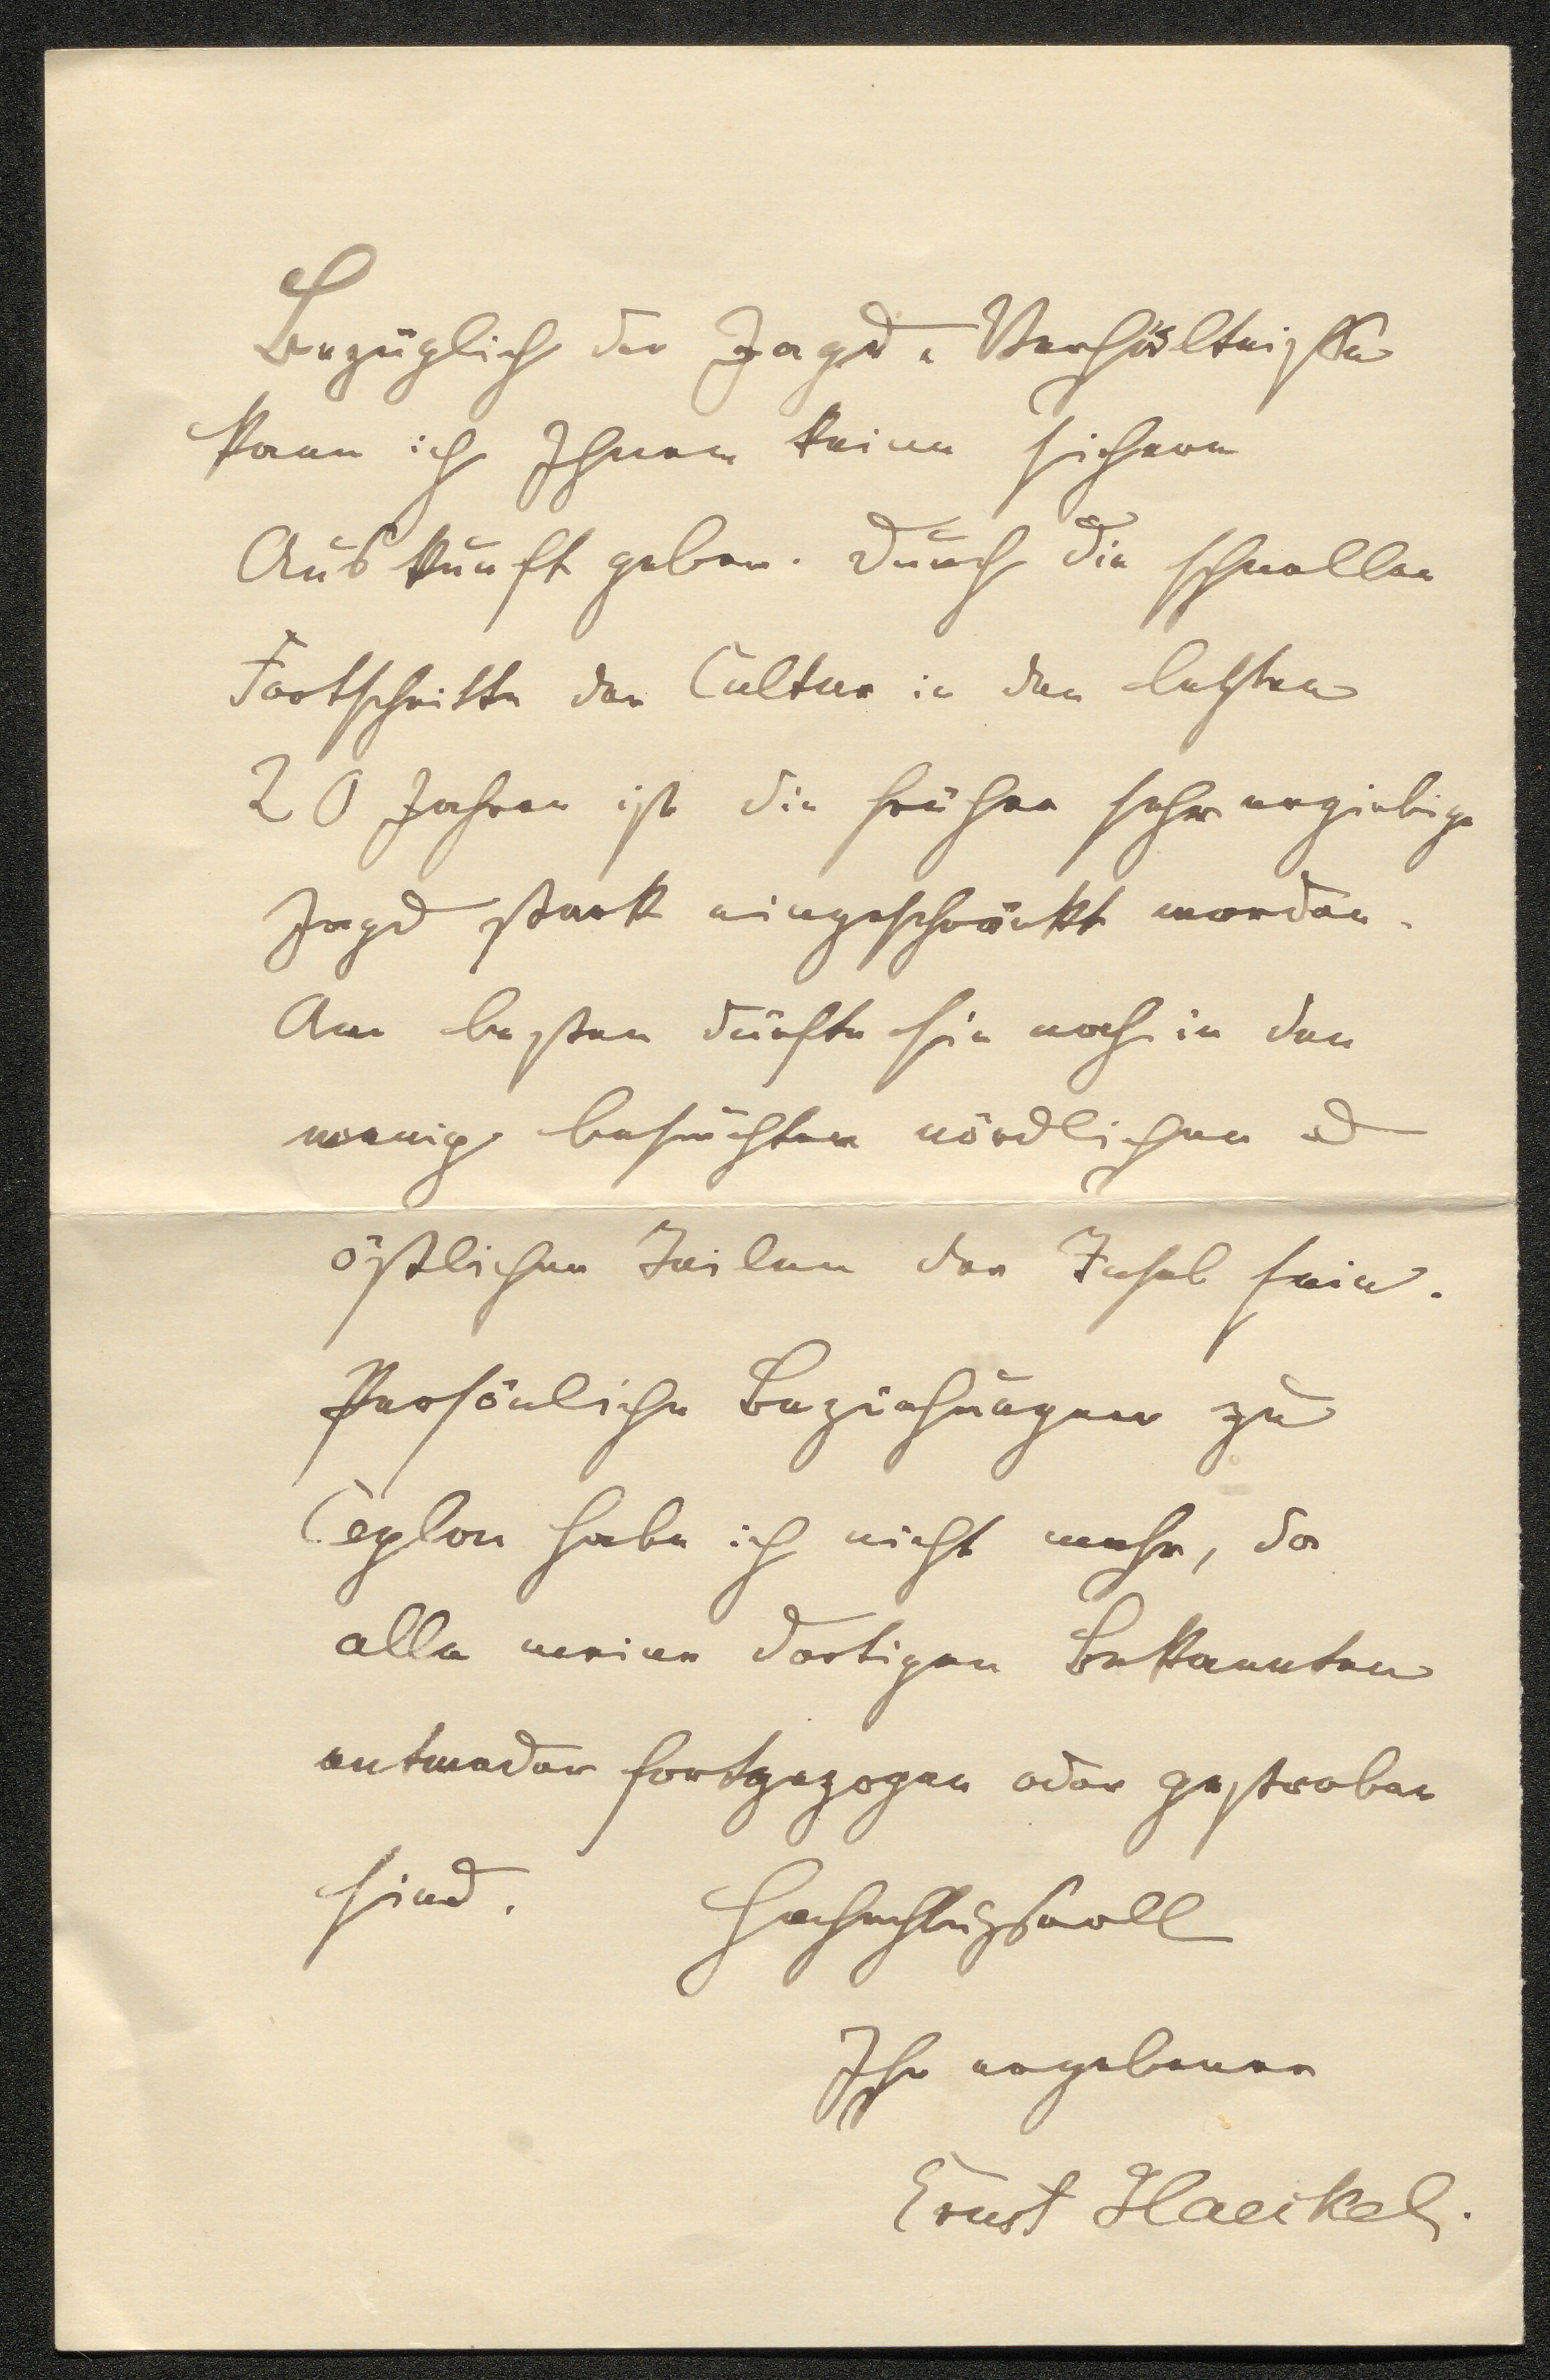 Bezüglich der Jagd-Verhältnisse
kann ich Ihnen keine sichere
Auskunft geben. Durch die schnellen
Fortschritte der Cultur in den letzten
20 Jahren ist die früher sehr ergiebige
Jagd stark eingeschränkt worden.
Am besten dürfte sie noch in den
wenig besuchten nördlichen u
östlichen Teilen der Insel sein.
Persönliche Beziehungen zu
Ceylon habe ich nicht mehr, da
alle meine dortigen Bekannten
entweder fortgezogen oder gestorben
sind. Hochachtungsvoll
Ihr ergebener
Ernst Haeckel.